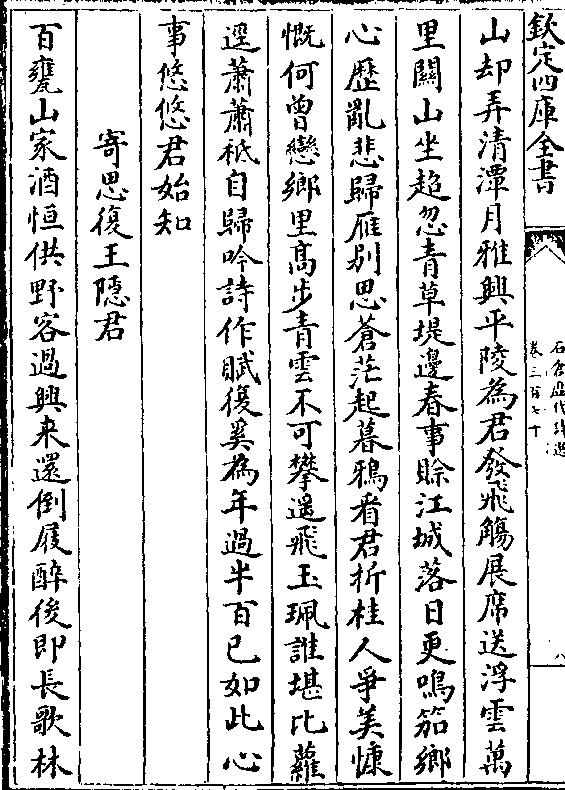 欽定四庫全書
石倉歷代詩選
卷三百七十
八
山却弄清潭月雅興平陵為君發飛觴展席送浮雲萬
里關山坐超忽青草堤邊春事賖江城落日更鳴笳鄉
心歷亂悲歸雁别思蒼茫起暮鴉看君折桂人爭羡慷
慨何曾戀鄉里髙步青雲不可攀還飛玉珮誰堪比蘿
逕蕭蕭秪自歸吟詩作賦復奚為年過半百已如此心
事悠悠君始知
寄思復王隠君
百甕山家酒恒供野客過興来還倒屐醉後即長歌林